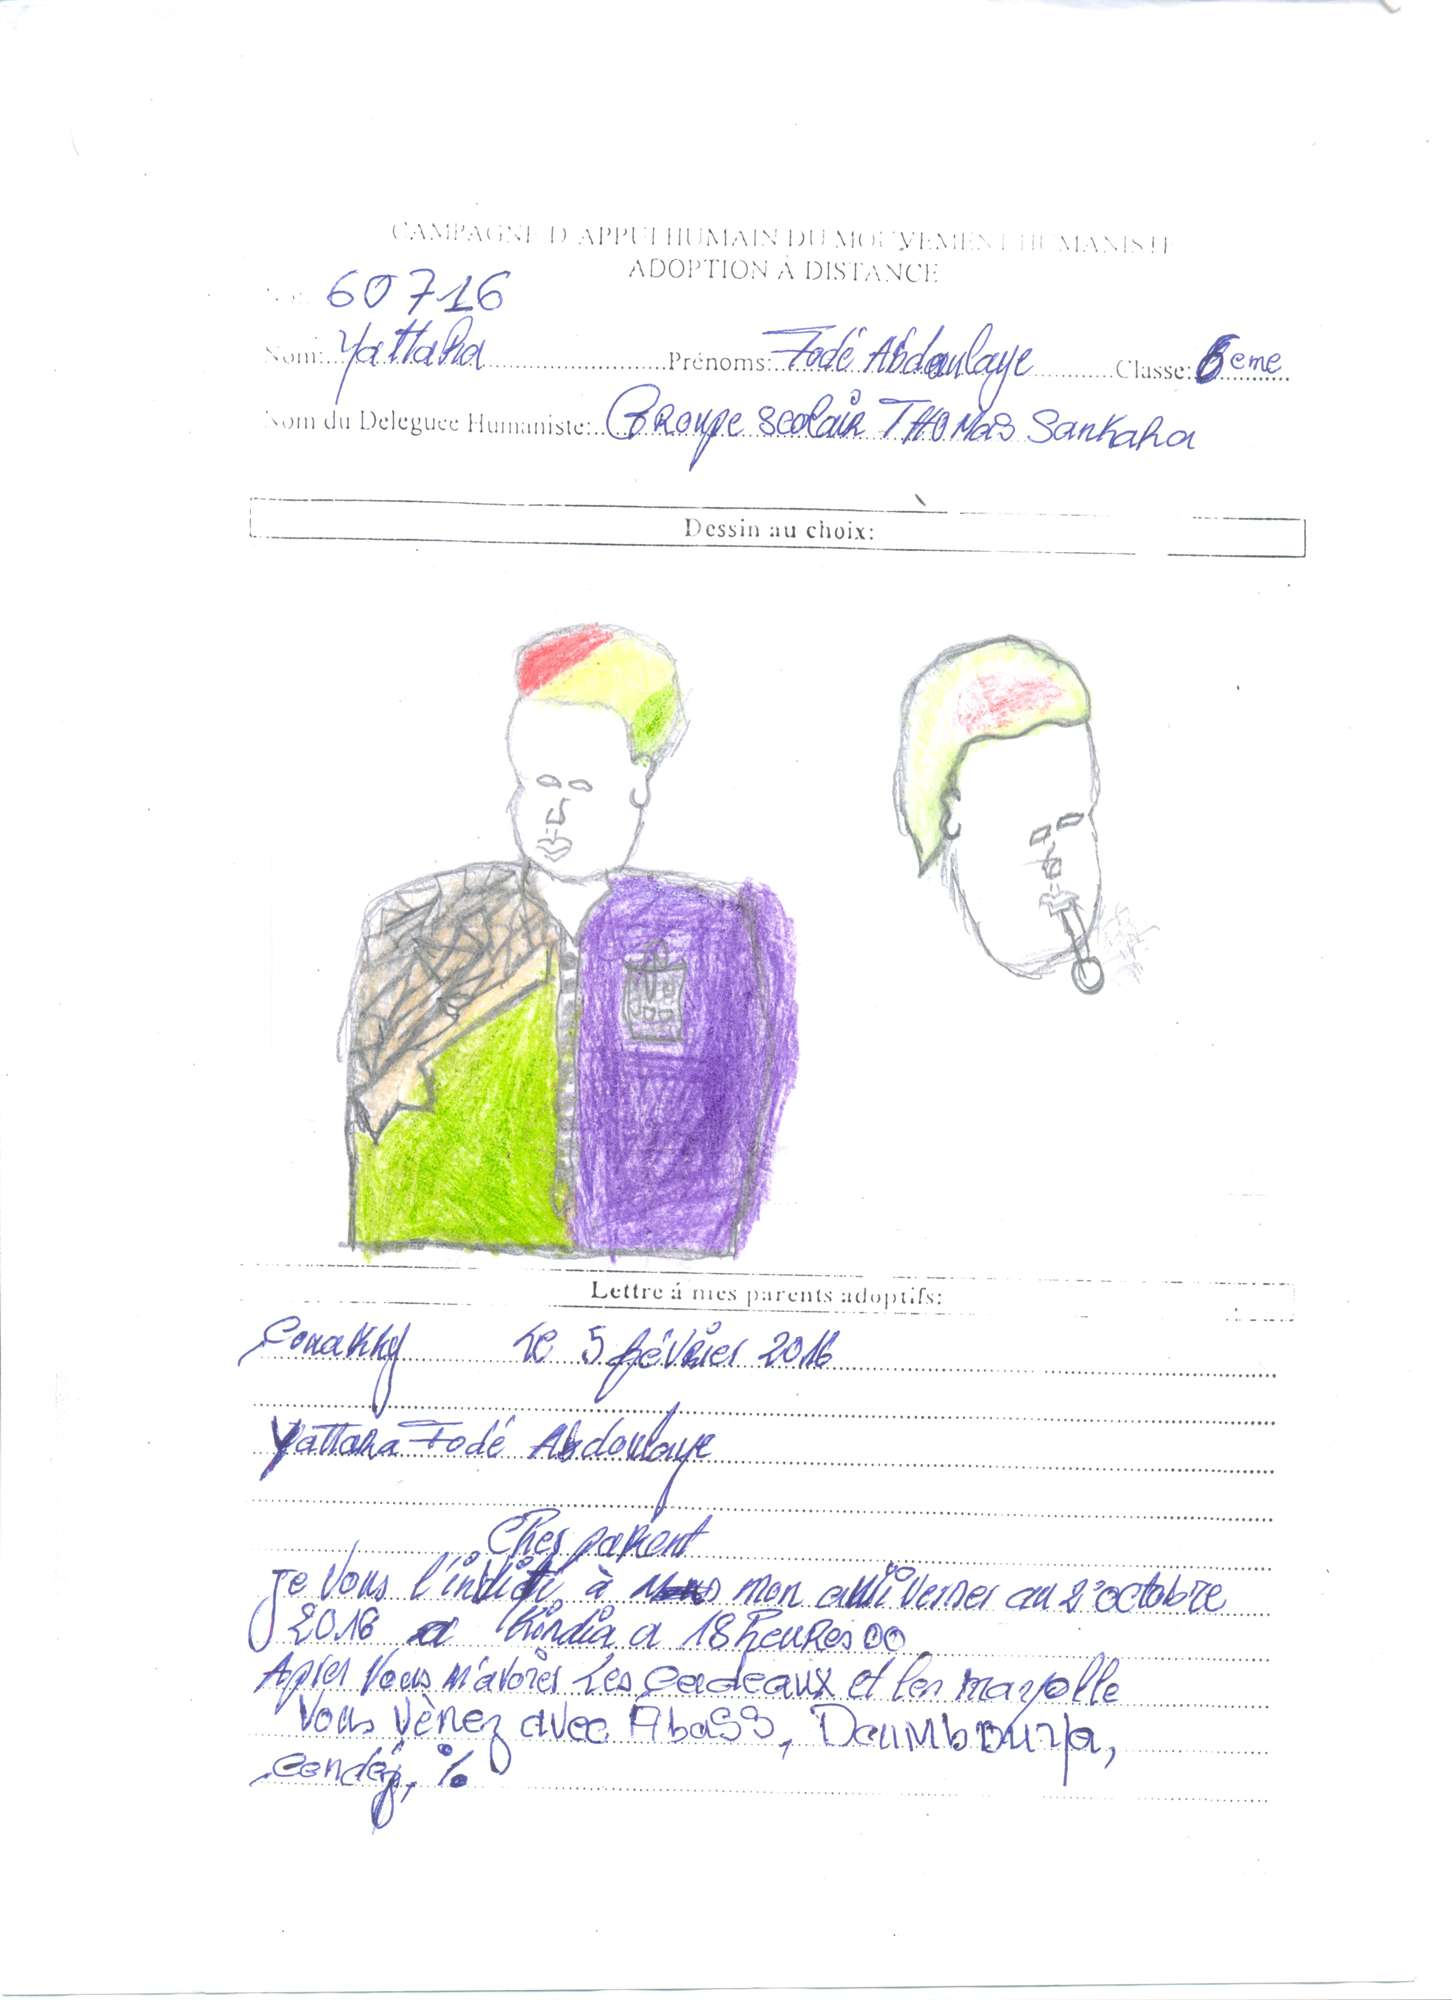 CAMPAGNE D'APPUI HUMAIN DU MOUVEMENT HUMANISTE
ADOPTION À DISTANCE
60716
Nom: Yattara Prénoms: Fodé Abdoulaye Classe: 6eme
Nom du Deleguee Humaniste: Groupe scolair THOMAS Sankara
Dessin au choix:
Lettre á mes parents adoptifs:
Conakry Le 5 février 2016
Yattara Fodé Abdoulaye
Cher parient
Je Vous l'invité à mon anniverser au 2 octobre
2016 a Kindia a 18 heures 00
Aprer Vous Les cadeaux et les
Vous Vènez avec Abass, Doumbouya,